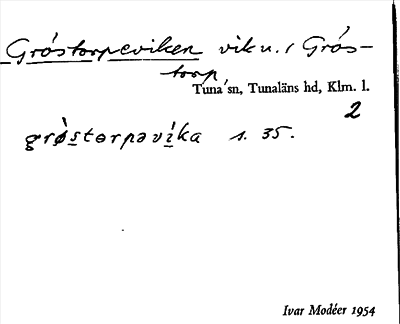 Gróstorpeviken vik u. / Grós-
torp
Tuna sn, Tunaläns hd, Klm. l.
2
grø̀stɵrpəvíka s. 35.
Ivar Modéer 1954